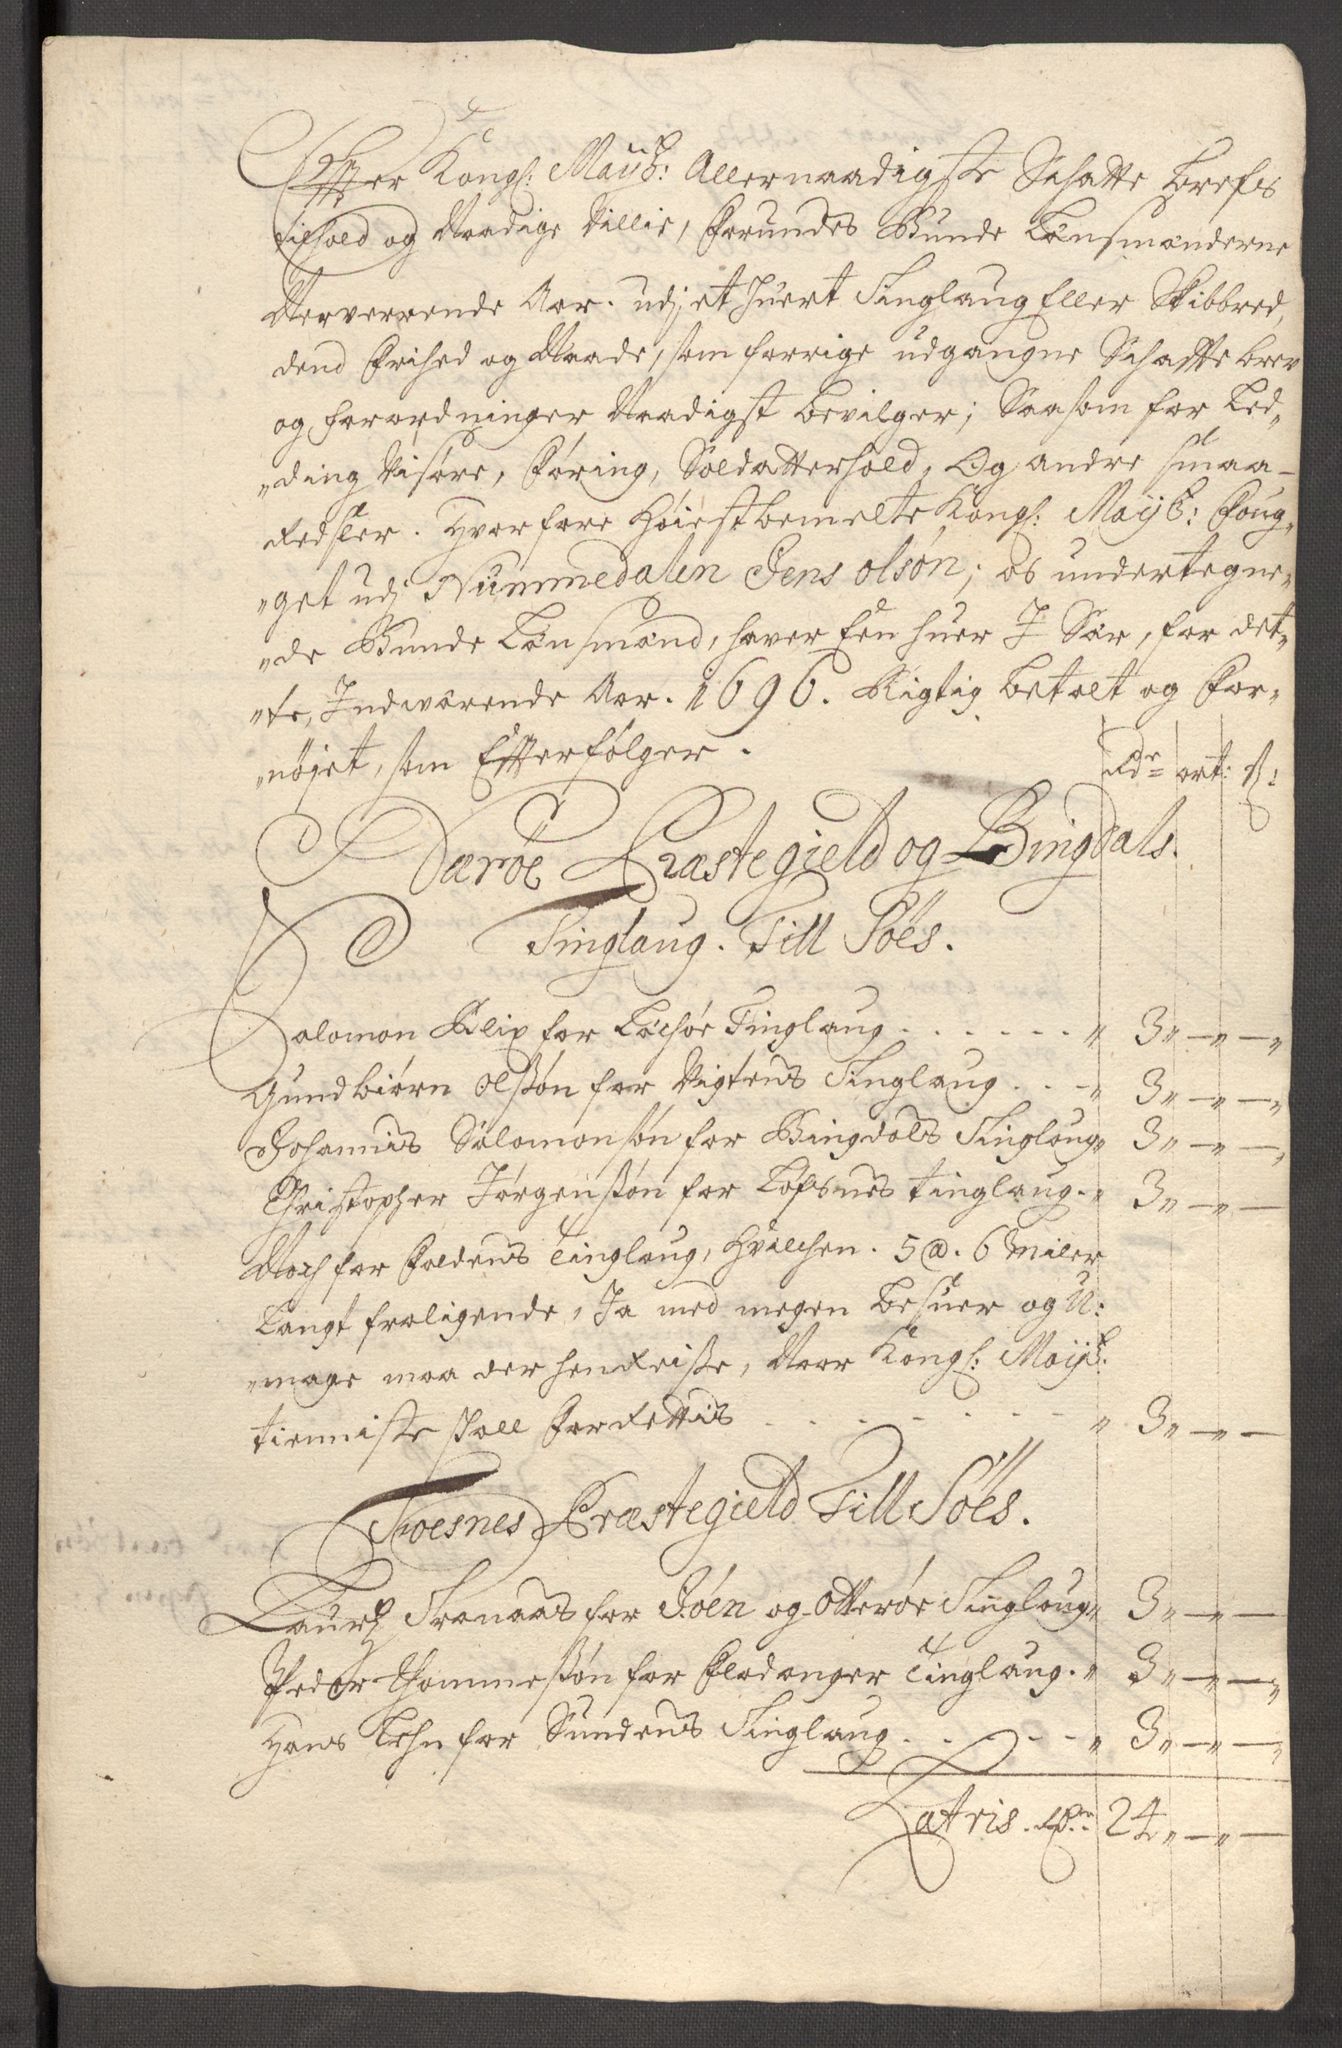 Efter Kongl: Maÿtz: Allernaadigste Schatte brefs
tilhold og Naadige Villie, Forundes Bunde Lensmænderne
Nerverrende Aar. udj et huert Tinglaug Eller Skibbred,
dend Frihed og Naade, som forrige udgangne Schatte brev
og forordninger Naadigst bevilger; Saasom for Led„
„ding Visøre, Føring, Soldatterhold, Og andre smaa-
Redsler. Hvorfore Høiestbemelte Kongl: Maÿtz: Foug„
„get udj Nummedalen Jens olsøn; os undertegne„
„de Bunde Lensmænd, haver Een huer J Sær, for det„
„te, Indwærende Aar. 1696. Rigtig betalt og For„
„nöjet, som Efterfølger.
Rdr ort: ß:
Nærøe Præstegield og Bingdals.
Tinglaug. Till Söes.
Salomon Klip for Lechøe Tinglaug . . . . . . „ 3„ —„ —„
Gundbiörn olssøn for Vigtens Tinglaug . . . „ 3„ —„ —„
Johannis Salomonsøn for Bingdals Tinglaug„ 3„ —„ —„
Christopher Jörgenssøn for Lofsnes tinglaug. „ 3„ —„ —
Noch for Foldens Tinglaug, hvilchen. 5 @. 6 Miler
Langt fraligende, Ja med megen besuer og U:
„mage maa der hen Reisse, Naar Kongl: Maÿtz:
tienniste skall Forrettis . . . . . . . „ 3„ —„ —
Foesnes Præstegield Till Söes.
Lauritz Tranaas for Jöen og Otterøe Tinglaug„ 3„ —„ —
Peder Thommessøn for Fladanger Tinglaug. „ 3„ —„ —„
Hans Lehn for Sundens Tinglaug . . . . . „ 3„ —„ —„
Latris. Rdr 24„ —„ —